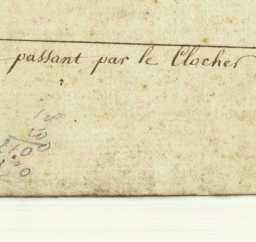 passant par le Clocher